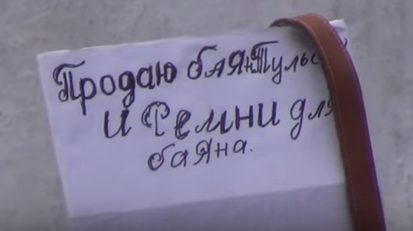 Продаю баян Тульс
и Ремни для
баяна.